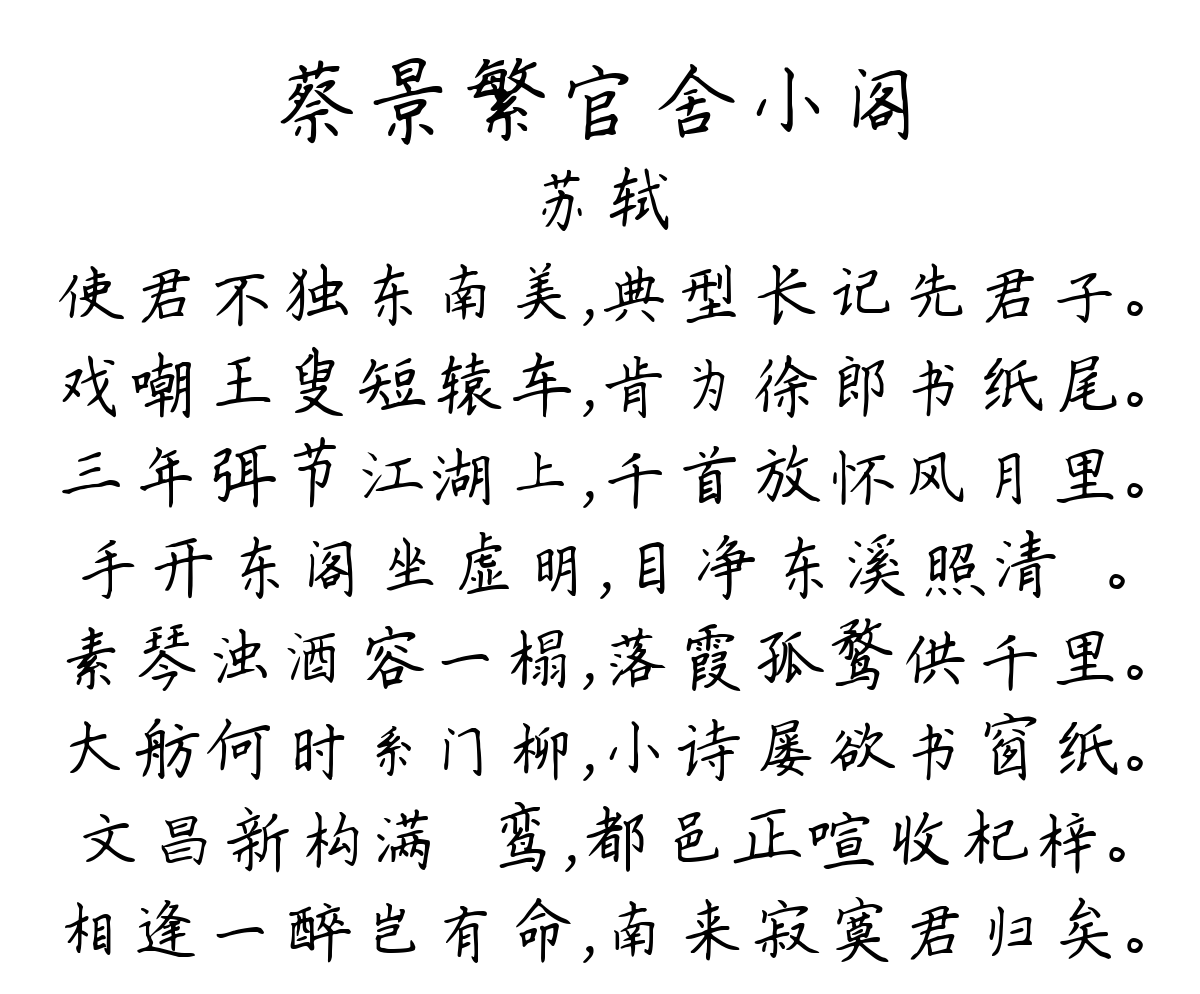 蔡景繁官舍小阁
苏轼
使君不独东南美,典型长记先君子。
戏嘲王叟短辕车,肯为徐郎书纸尾。
三年弭节江湖上,千首放怀风月里。
手开东阁坐虚明,目净东溪照清 。
素琴浊酒容一榻,落霞孤鹜供千里。
大舫何时系门柳,小诗屡欲书窗纸。
文昌新构满 鸾,都邑正喧收杞梓。
相逢一醉岂有命,南来寂寞君归矣。